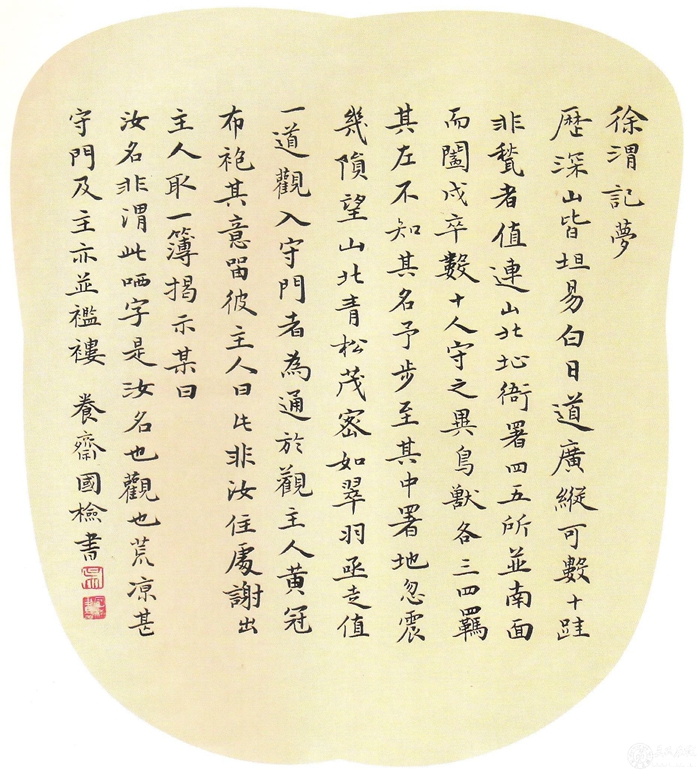 徐渭記夢
歷深山皆坦易白日道廣縱可數十跬
非甃者值連山北址衙署四五所並南面
而闔戍卒數十人守之異鳥獸各三四羈
其左不知其名予步至其中署地忽震
幾隕望山北青松茂密如翠羽亟走值
一道觀入守門者為通於觀主人黄冠
布袍其意留彼主人曰此非汝住處謝出
主人取一簿揭示某曰
汝名非渭此哂字是汝名也觀也荒凉甚
守門及主亦並襤褸 養齋國檢書